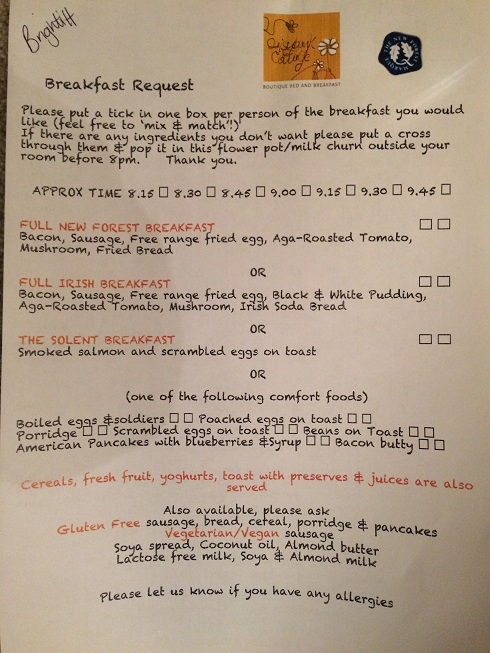 Brightiff
Cottage
BOUTIQUE BED AND BREAKFAST
THE NEW FOREST MARQUE
Breakfast Request
Please put a tick in one box per person of the breakfast you would
like (feel free to 'mix & match'!)
If there are any ingredients you don't want please put a cross
through them & pop it in this flower pot/milk churn outside your
room before 8pm. Thank you.
APPROX TIME 8.15 □ 8.30 □ 8.45 □ 9.00 □ 9.15 □ 9.30 □ 9.45 □
FULL NEW FOREST BREAKFAST □ □
Bacon, Sausage, Free range fried egg, Aga-Roasted Tomato,
Mushroom, Fried Bread
OR
FULL IRISH BREAKFAST □ □
Bacon, Sausage, Free range fried egg, Black & White Pudding,
Aga-Roasted Tomato, Mushroom, Irish Soda Bread
OR
THE SOLENT BREAKFAST □ □
Smoked salmon and scrambled eggs on toast
OR
(one of the following comfort foods)
Boiled eggs &soldiers □ □ Poached eggs on toast □ □
Porridge □ □ Scrambled eggs on toast □ □ Beans on Toast □ □
American Pancakes with blueberries &Syrup □ □ Bacon butty □ □
Cereals, fresh fruit, yoghurts, toast with preserves & juices are also
served
Also available, please ask
Gluten Free sausage, bread, cereal, porridge & pancakes
Vegetarian/Vegan sausage
Soya spread, Coconut oil, Almond butter
Lactose free milk, Soya & Almond milk
Please let us know if you have any allergies